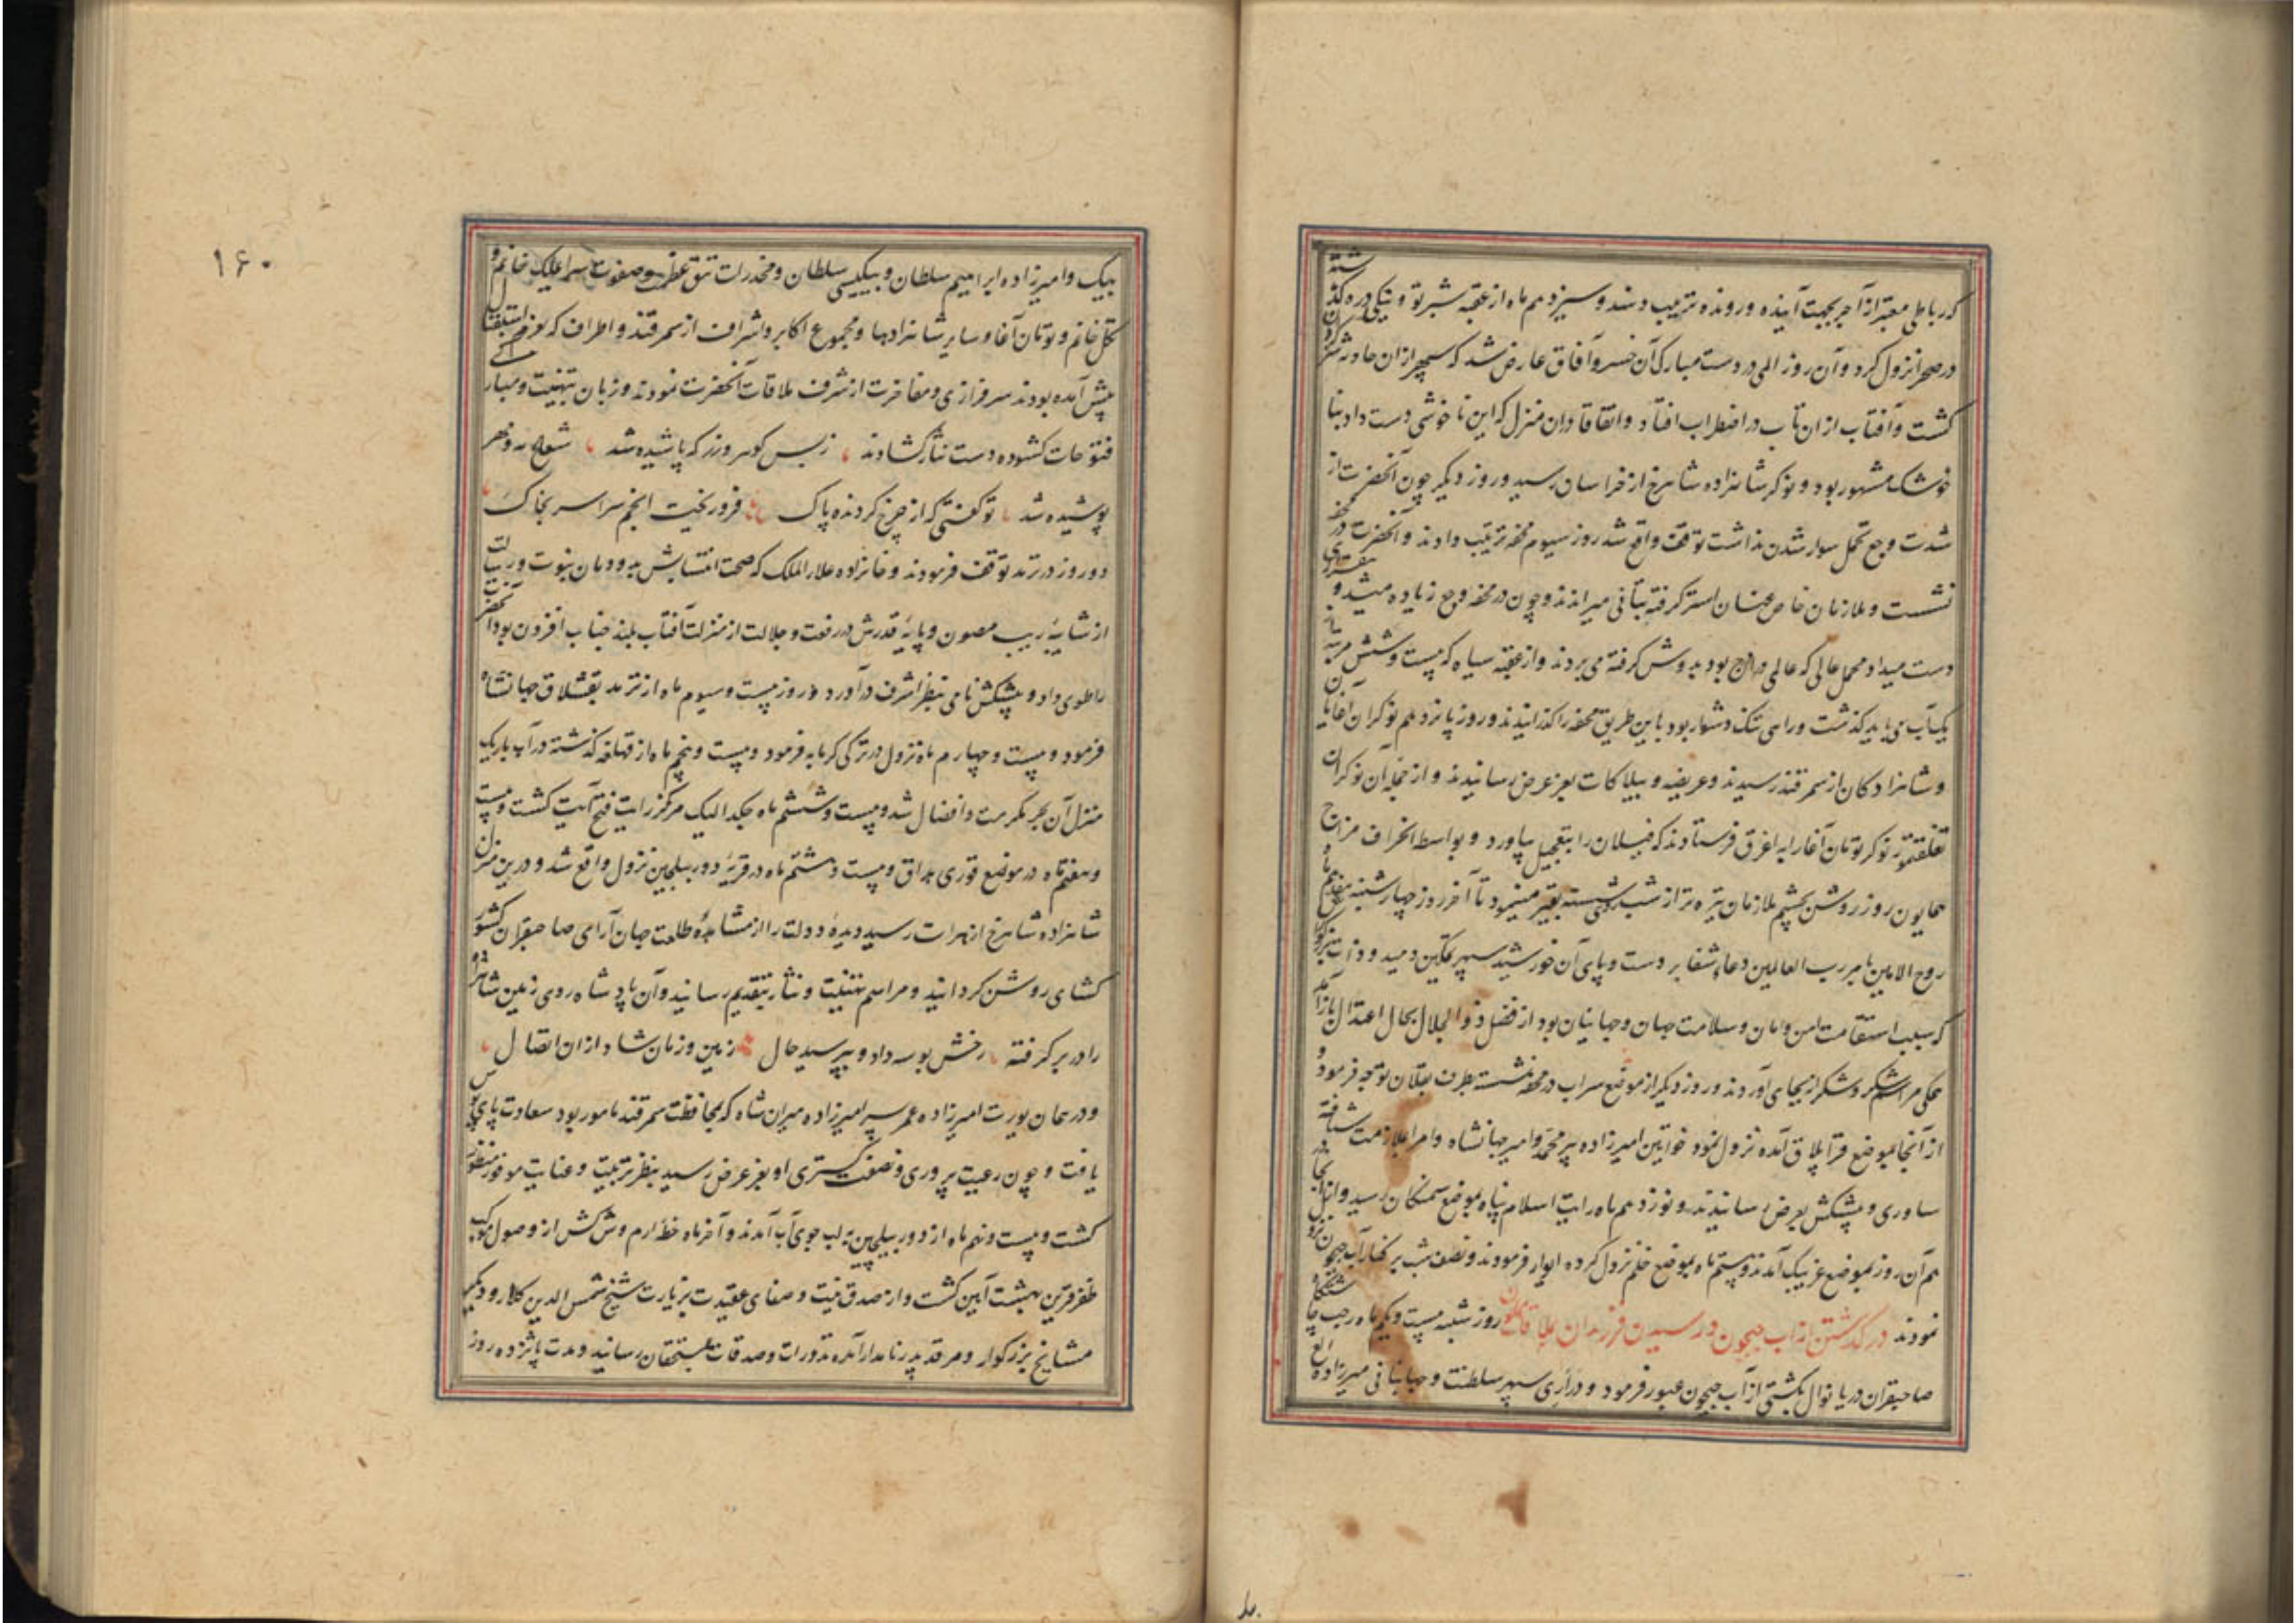 که رباطی معتبر از آجر بجهت آینده و رونده ترتیب دهند و سیزدهم ماه از عقبه شبرتو و نیکی دره گذشته
در صحرا نزول کرد و آن روز المی در دست مبارک آن خسرو آفاق عارض شد که سپهر از ان حادثه
کشت و آفتاب از ان تاب در اضطراب افتاد و اتفاقا دران منزل که این ناخوشی دست داد
خوشک مشهور بود و نوکر شاهزاده شاهرخ از خراسان رسید و روز دیگر چون آنحضرت از
شدت وجع تحمل سوار شدن نداشت توقف واقع شد روز سیوم محفه ترتیب دادند و آنحضرت در محفه
نشست و ملازمان خاص عنان استر گرفته بتانی میراندند و چون در محفه وجع زیاده میشد و
دست میداد محمل عالی که عالمی دران بود بدوش گرفته می بردند و از عقبه سیاه که بیست و شش مرتبه
یک آب می باید گذشت و راهی تنک و دشوار بود باین طریق محفه را گذرانیدند و روز پانزدهم نوکران آغایان
و شاهزادکان از سمرقند رسیدند و عریضه و بیلاکات بعز عرض رسانیدند و از جمله آن نوکران
نوکر تومان آغا را به اغرق فرستادند که فیلان را بتعجیل بیاورد و بواسطه انحراف مزاج
همایون روز روشن بچشم ملازمان تیره تر از شب مینمود تا آخر روز چهارشنبه
روح الامین بامر رب العالمین دعاء شفا بر دست و پای آن خورشید سپهر تمکین دمید و ذات بزرکوار
که سبب استقامت امن و امان و سلامت جهان و جهانیان بود از فضل ذو الجلال بحال اعتدال باز آمد
همکی مراسم شکر و شکرانه بجای آوردند و روز دیگر از موضع سراب در محفه نشسته بطرف بقلان توجه فرمود و
از آنجا بموضع قرابلاق آمده نزول نمود خواتین امیرزاده پیر محمد و امیر جهانشاه و امرا بملازمت شتافته
ساوری و پیشکش بعرض رسانیدند و نوزدهم ماه رایت اسلام پناه بموضع سمنکان رسید و از آنجا
هم آن روز بموضع غزنیک آمدند و بیستم ماه بموضع خلم نزول کرده ایوار فرمودند و نصف شب بر کنار آب جیحون نزول
نمودند در گذشتن از آب جیحون و رسیدن فرزندان بملاقات همایون روز شنبه بیست و یکم ماه رجب
صاحبقران دریا نوال بکشتی از آب جیحون عبور فرمود و دراری سپهر سلطنت و جهانبانی میرزاده الغ
۱۶۰
بیک و امیرزاده ابراهیم سلطان و بیکیسی سلطان و مخدرات تتق عظمت و صفوت سرا ملک خانم و
تکل خانم و تومان آغا و سایر شاهزادها و مجموع اکابر و اشراف از سمرقند و اطراف که بعزم استقبال
پیش آمده بودند سرفرازی و مفاخرت از شرف ملاقات آنحضرت نمودند و زبان تهنیت و مبارکی
فتوحات کشوده دست نثار گشادند زبس گوهر و زر که پاشیده شد شعاع مه و مهر
پوشیده شد تو گفتی که از چرخ کردنده پاک فرو ریخت انجم سراسر بخاک
دو روز در ترمد توقف فرمودند و خانزاده علاء الملک که صحت انتسابش بدودمان نبوت و رسالت
از شایبهٔ ریب مصون و پایهٔ قدرش در رفعت و جلالت از منزلت آفتاب بلند جناب افزون بود آنحضرت
را طوی داد و پیشکش نامی بنظر اشرف درآورد و روز بیست و سیوم ماه از ترمد بقشلاق جهانشاه
فرمود و بیست و چهارم ماه نزول در ترکی گرمابه فرمود و بیست و پنجم ماه از قهلغه گذشته در آب باریک
منزل آن بحر مکرمت و افضال شد و بیست و ششم ماه جکدالیک مرکز رایت فتح آیت کشت و بیست
و هفتم ماه در موضع قوری مداق و بیست و هشتم ماه در قریهٔ دوربیلجین نزول واقع شد و درین منزل
شاهزاده شاهرخ از هرات رسید دیدهٔ دولت را از مشاهدهٔ طلعت جهان آرای صاحبقران کشور
کشای روشن کردانید و مراسم تهنیت و نثار بتقدیم رسانید و آن پادشاه روی زمین شاهزاده
را در بر گرفته رخش بوسه داد و بپرسید حال زمین و زمان شاد ازان اتصال
و در همان یورت امیرزاده عمر پسر امیرزاده میران شاه که بمحافظت سمرقند مامور بود سعادت پای بوس
یافت و چون رعیت پروری و نصفت گستری او بعز عرض رسید بنظر تربیت و عنایت موفور منظور
کشت و بیست و نهم ماه از دوربیلجین به لب جوی آب آمدند و آخر ماه خطهٔ ارم وش کش از وصول موکب
ظفر قرین بهشت آیین کشت و از صدق نیت و صفای عقیدت بزیارت شیخ شمس الدین کلار و دیگر
مشایخ بزرکوار و مرقد پدر نامدار آمده نذورات و صدقات بمستحقان رسانید و مدت پانزده روز